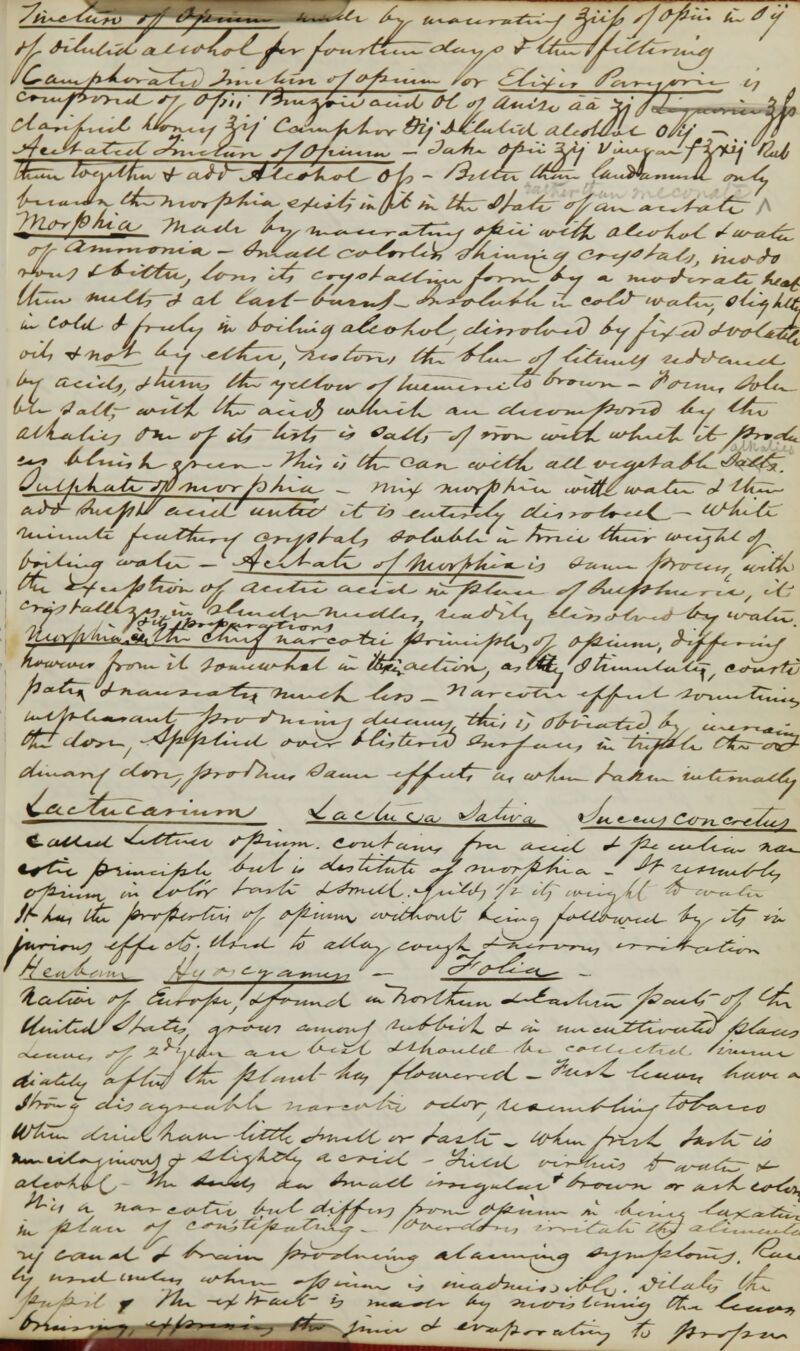 Tincture of Opium made by macerating ℥iiſs of opii in Oij
of diluted alcohol for fourteen days & then filtering
Camphorated Tincture of opium or Elixir Paregoric is
composed of opii Benzoic acid Ol of anise aa ʒj
clarified honey ℥ij Camphor ℈ij Diluted alcohol Oij –
Acetated Tincture of Opium – Take opii ℥ij Vinegar f℥xij Rub
them together & add Alcohol Oſs – Better than laudanum only
rather than meconate
because the morphia exists in it in the state of an acetate ^
Morphia made by macerating opii with alcohol & water
of Ammonia – Small colorless shining crystals, inodo
rous & bitter, loses its crystalline form by a moderate heat
then melts & at last burns – Insoluble in cold water, slightly
in cold & freely in boiling alcohol, dissolved by fixed & volatile
oils & not by ether, restores the blue of litmus reddened
by acids, & turns the yellow of turmeric to brown – Forms solu
ble salts with the acids which are decomposed by the
alkalies One of its tests is salts of iron with which it produ
alkalies
ces bluish green – This is the case with all vegetable Salts.
Sulphate of morphia – Mix morphia with water & then
add sulph acid until it is entirely dissolved – White
minute feathery crystals soluble in twice their weight of
boiling water – Acetate of Morphia is same process, with
the exception of acetic acid in place of sulphuric, it
crystallizes in slender needles, readily dissolved by water.
& its preparations
Morphia is the chief narcotic principle, of opium, differing
however from it somewhat in their action, as they stimulate, consti
pate, & nauseate much less – Narcotic effect sometimes
unpleasant producing this is obviated by increasing
the dose, Applied over blistered surfaces in triple the or
dinary dose, produces same effects as when taken internally
Lactucarium Lactuca Sativa Succus concretus
Called Lettuce opium. contains free acid & peculiar nar
cotic principle but is destitute of morphia – It resembles
opium in color taste & smell. yields ½ its weight to water
It has the properties of opium without being followed by its in
jurious effects. Used to allay cough & nervous irritation
Henbane Hyoscyamus – Folia –
Native of Europe, & found in Northern & Eastern parts of the
United States, grows among rubbish & in uncultivated places
Leaves of 2d year are best & should be collected imme
diately after the plant has flowered – Fresh leaves have a
strong disagreeable narcotic odor, resembling tobacco
When dried have little smell or taste – When fresh taste is
mucilaginous & slightly acrid – Yield virtues to water &
alcohol – The seeds are small irregular & brown or ash color
It is a narcotic but differs from opium in being laxative
in place of constipating – Overdoses irritate the alimenta
ry canal & brain producing alarming symptoms. Rare
ly used unless when opium is inadmissible. Dilates the
pupil, The extract is made by moistening the leaves
bruising, expressing the juice & evaporating to proper